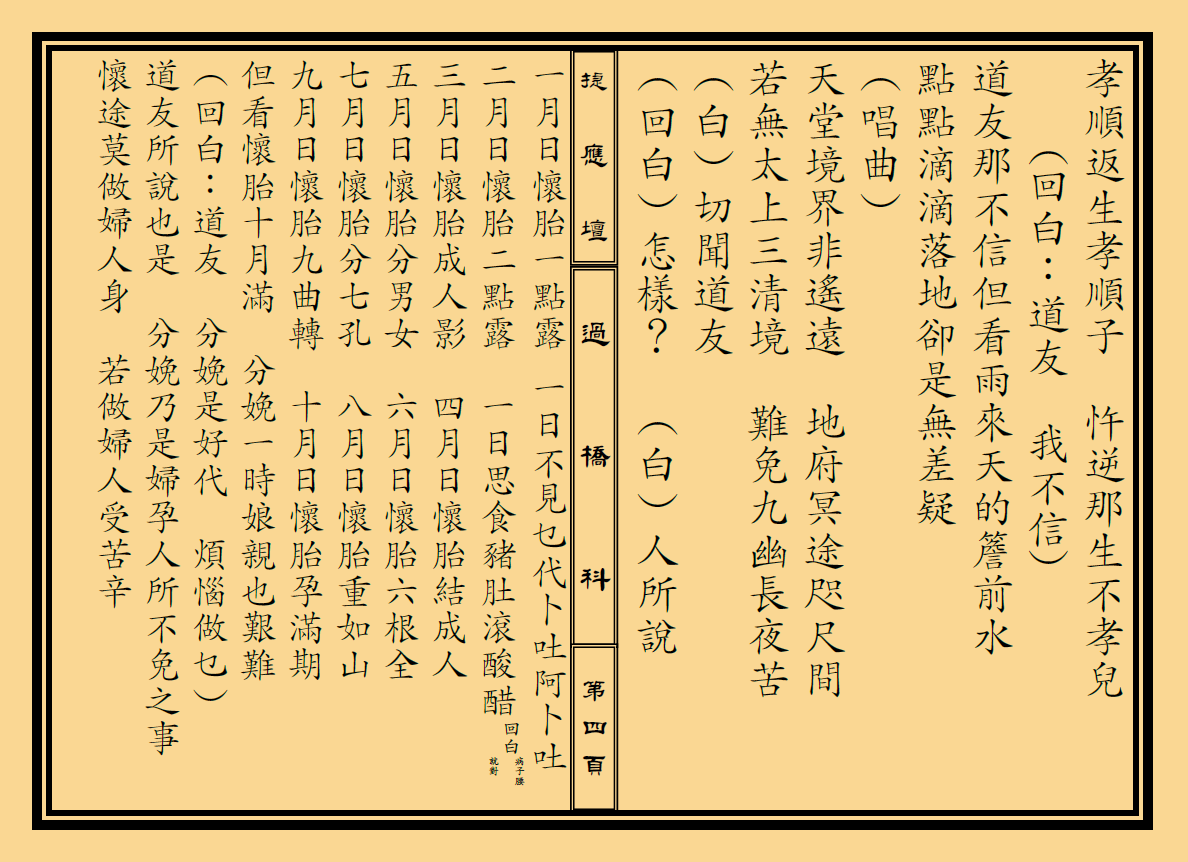 孝順返生孝順子　忤逆那生不孝兒
（回白：道友　我不信）
道友那不信但看雨來天的簷前水
點點滴滴落地卻是無差疑
（唱曲）
天堂境界非遙遠　地府冥途咫尺間
若無太上三清境　難免九幽長夜苦
（白）切聞道友
（回白）怎樣？　（白）人所說
捷應壇
過橋科
第四頁
一月日懷胎一點露　一日不見乜代卜吐阿卜吐
二月日懷胎二點露　一日思食豬肚滾酸醋
回白
病子腰
就對
三月日懷胎成人影　四月日懷胎結成人
五月日懷胎分男女　六月日懷胎六根全
七月日懷胎分七孔　八月日懷胎重如山
九月日懷胎九曲轉　十月日懷胎孕滿期
但看懷胎十月滿　分娩一時娘親也艱難
（回白：道友　分娩是好代　煩惱做乜）
道友所說也是　分娩乃是婦孕人所不免之事
懷途莫做婦人身　若做婦人受苦辛